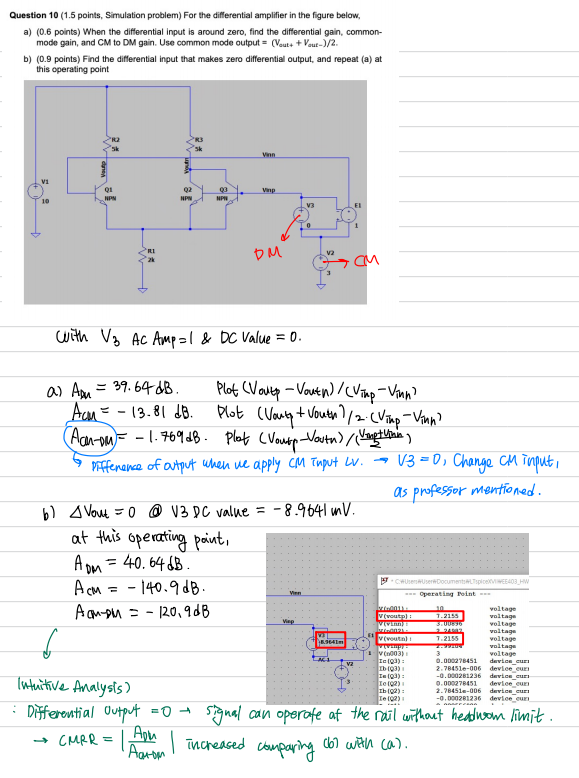 Question 10 (1.5 points, Simulation problem) For the differential amplifier in the figure below,
a) (0.6 points) When the differential input is around zero, find the differential gain, common-
mode gain, and CM to DM gain. Use common mode output = (Vout+ + Vout-)/2.
b) (0.9 points) Find the differential input that makes zero differential output, and repeat (a) at
this operating point
R2
5k
R3
5k
Vinn
Voutp
Voutn
V1
10
Q1
NPN
Q2
NPN
Q3
NPN
Vinp
V3
0
E1
1
R1
2k
DM
V2
3
CM
With V3 AC Amp=1 & DC Value = 0.
a) ADM = 39.64dB. Plot (Voutp - Voutn)/(Vinp-Vinn)
ACM = - 13.81 dB. Plot (Voutp + Voutn)/2·(Vinp-Vinn)
ACM-DM = - 1.769dB. Plot (Voutp-Voutn)/(Vinp+Vinn/2)
Difference of output when we apply CM Input LV. → V3 = 0, Change CM input,
as professor mentioned.
b) ΔVout = 0 @ V3 DC value = -8.9641 mV.
at this operating point,
ADM = 40.64dB.
ACM = - 140.9dB.
ACM-DM = - 120.9dB
Vinn
Vinp
V3
-8.9641m
AC 1
E1
1
V2
3
--- Operating Point ---
V(n001): 10 voltage
V(voutp): 7.2155 voltage
V(vinn): 3.00896 voltage
voltage
V(voutn): 7.2155 voltage
V(vinp): 2.99104 voltage
V(n003): 3 voltage
Ic(Q3): 0.000278451 device_curr
Ib(Q3): 2.78451e-006 device_curr
Ie(Q3): -0.000281236 device_curr
Ic(Q2): 0.000278451 device_curr
Ib(Q2): 2.78451e-006 device_curr
Ie(Q2): -0.000281236 device_curr
Intuitive Analysis)
: Differential Output = 0 → Signal can operate at the rail without headroom limit.
→ CMRR = | ADM / ACM-DM | increased comparing (b) with (a).